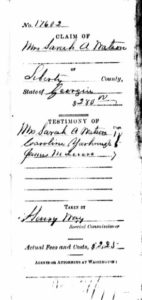 No. 17602
CLAIM OF
Mrs Sarah A Watson
OF
Liberty County,
State of Georgia
$280.00
TESTIMONY OF
Mrs Sarah A Watson
Caroline
James M
TAKEN BY
Henry Way
Special Commissioner
Actual Fees and Costs, $2.25
AGENTS OR ATTORNEYS AT WASHINGTON: